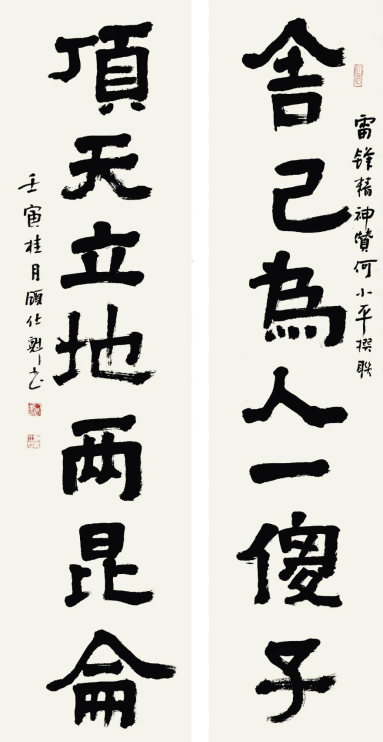 雷鋒精神贊何小平撰联
舍己為人一傻子
頂天立地两昆侖
壬寅桂月顾仕魁书